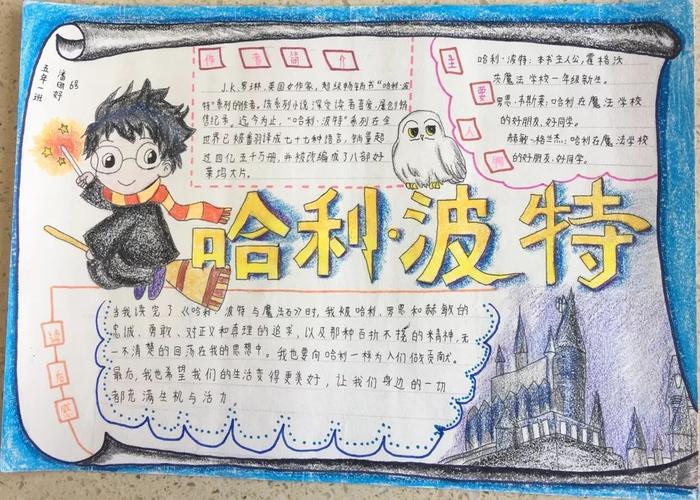 五年一班
潘田好
68
作者简介
J.K.罗琳,英国女作家,超级畅销书“哈利·波
特”系列的作者。该系列小说深受读者喜爱,屡创销
售纪录。迄今为止,“哈利·波特”系列在全
世界已被翻译成七十七种语言,销量超
过四亿五千万册,并被改编成了八部好
莱坞大片。
主要人物
哈利·波特:本书主人公,霍格沃
茨魔法学校一年级新生。
罗恩·韦斯莱:哈利在魔法学校
的好朋友、好同学。
赫敏·格兰杰:哈利在魔法学校
的好朋友、好同学。
哈利·波特
读后感
当我读完了《哈利·波特与魔法石》时,我被哈利、罗恩和赫敏的
忠诚、勇敢、对正义和真理的追求,以及那种百折不挠的精神,无
一不清楚的回荡在我的思想中。我也要向哈利一样为人们做贡献。
最后,我也希望我们的生活变得更美好,让我们身边的一切
都充满生机与活力